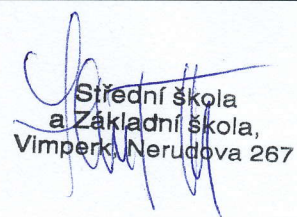 Střední škola
a Základní škola,
Vimperk, Nerudova 267